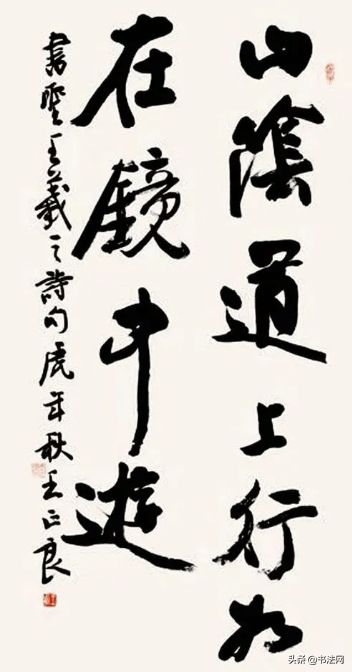 山陰道上行如
在鏡中遊
書聖王羲之詩句虎年秋王正良
头条 @书法网